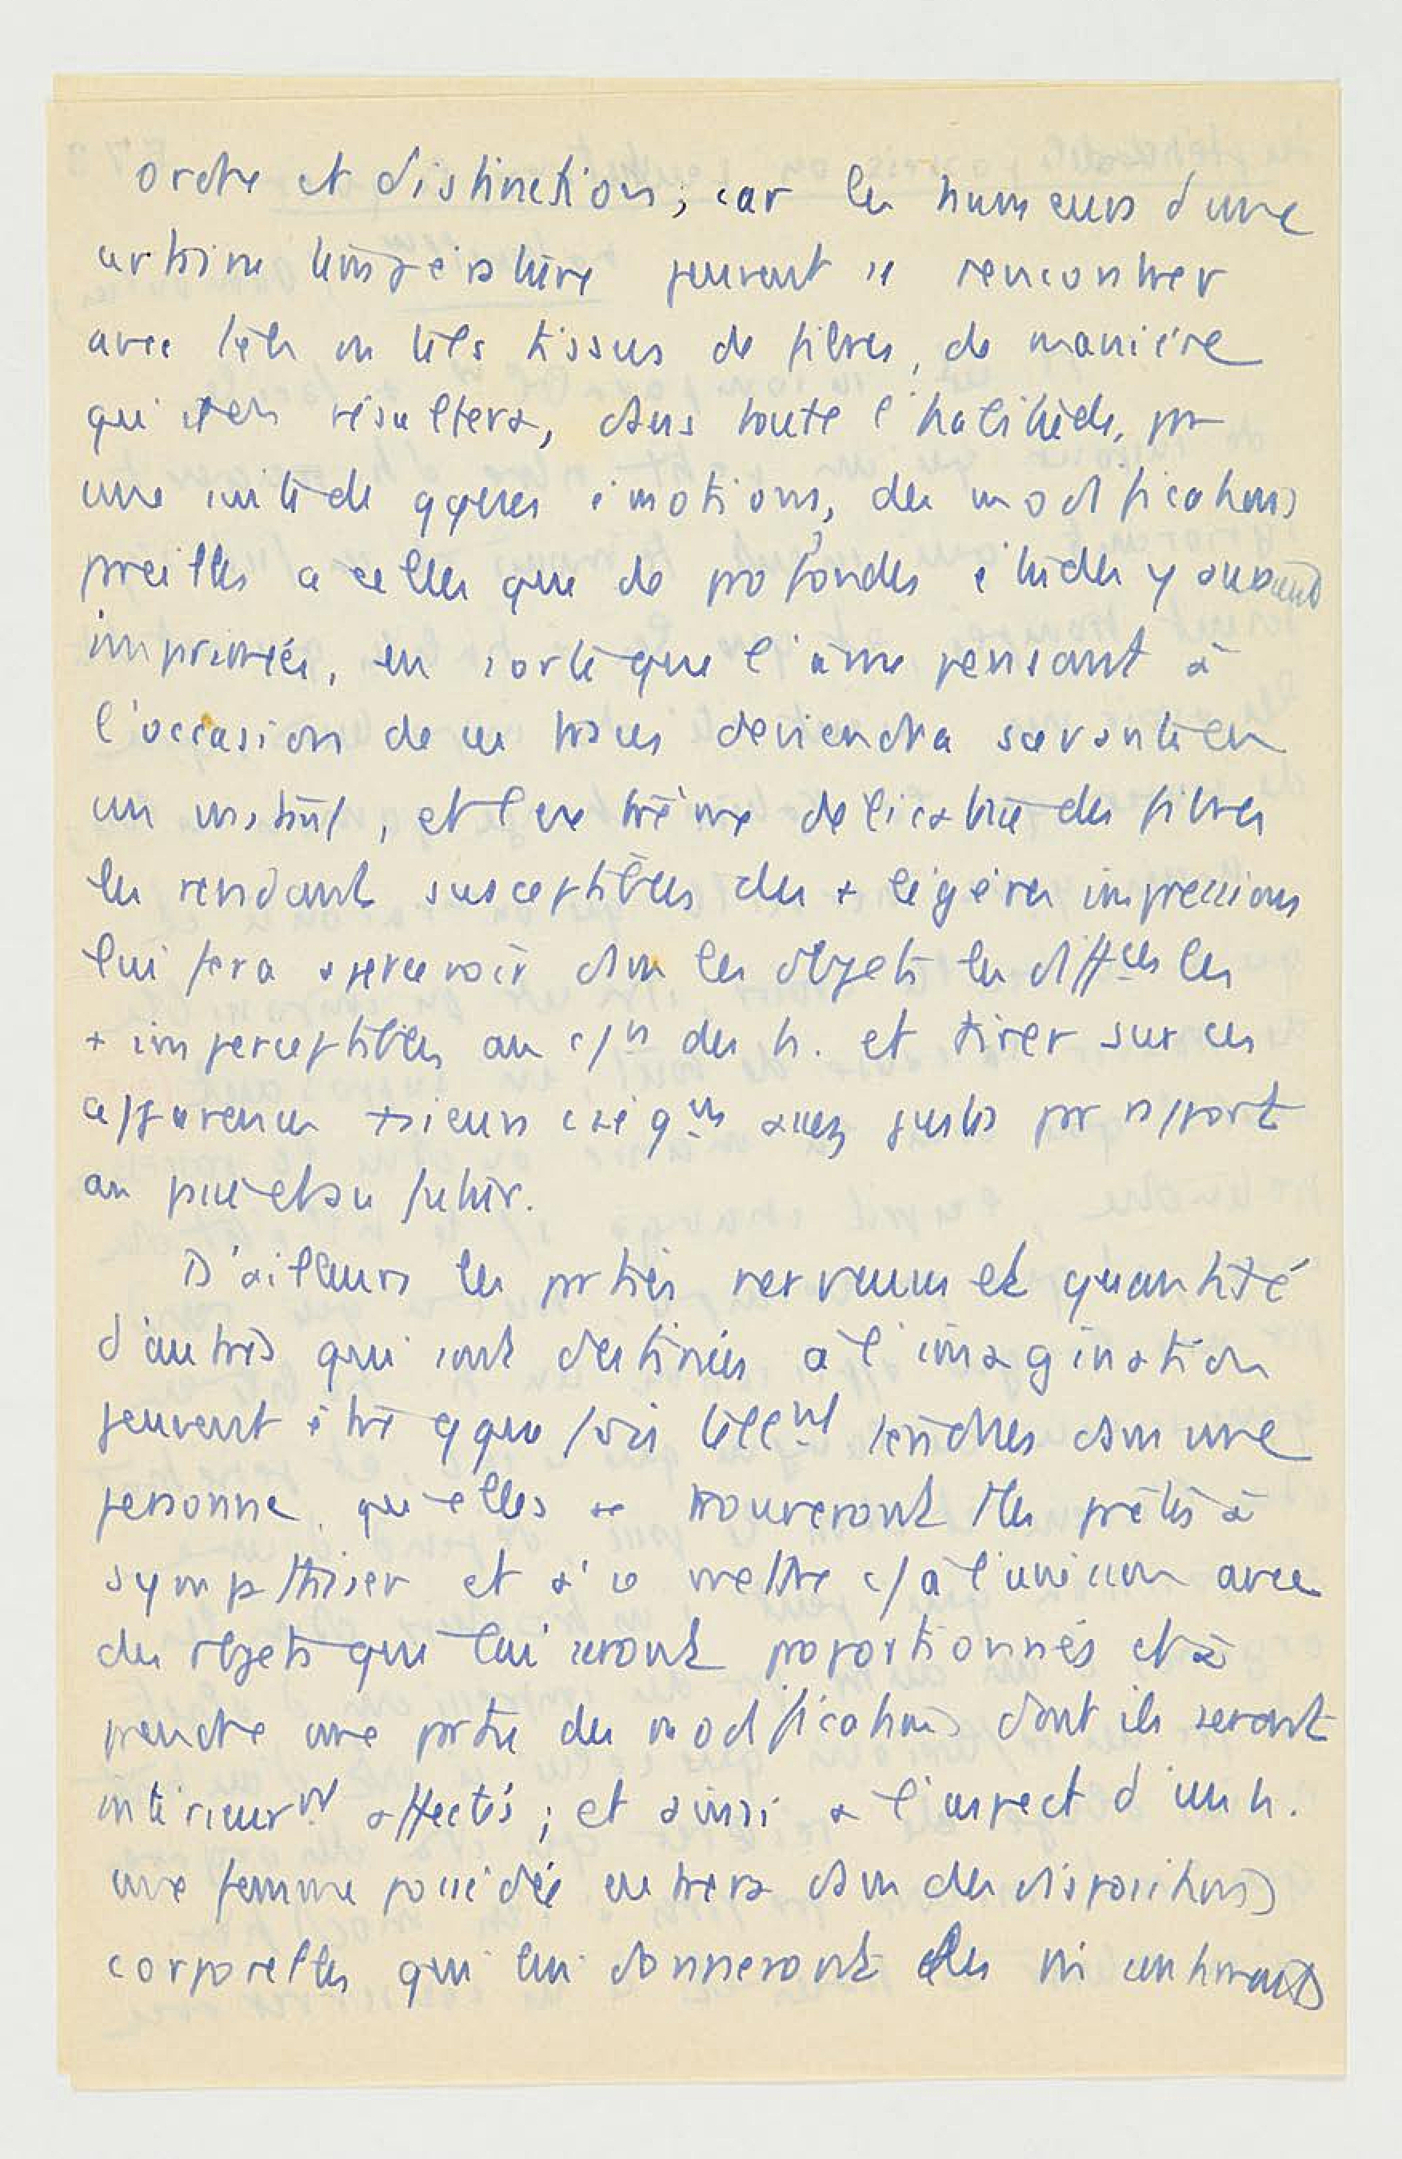 ordre et distinction ; car les humeurs d'une
certaine température peuvent se rencontrer
avec tels ou tels tissus de fibres, de manière
qu'il en résultera, dans toute l'habitude, pr
une suite de qques émotions, des modifications
preilles a celles que de profondes études y auraient
imprimées, en sorte que l'âme pensant à
l'occasion de ces traces deviendra savante en
un instant, et l'extrême délicatesse des fibres
les rendant susceptibles des + légères impressions
lui fera apercevoir dans les objets les diffces les
+ imperceptibles au c/n des h. et tirer sur ces
apparences +sieurs conséqces assez justes pr rapport
au passé et au futur.
D'ailleurs les prties nerveuses et quantité
d'autres qui sont destinées à l'imagination
peuvent être qquefois tellent tendres dans une
personne, qu'elles se trouveront tles prêtes à
sympathiser et à se mettre c/ à l'unisson avec
des objets qui lui seront proportionnés et à
prendre une prtie des modifications dont ils seront
intérieurnt affectés ; et ainsi à l'aspect d'un h.
une femme possédée entrera dans des dispositions
corporelles qui lui donneront des sentiments